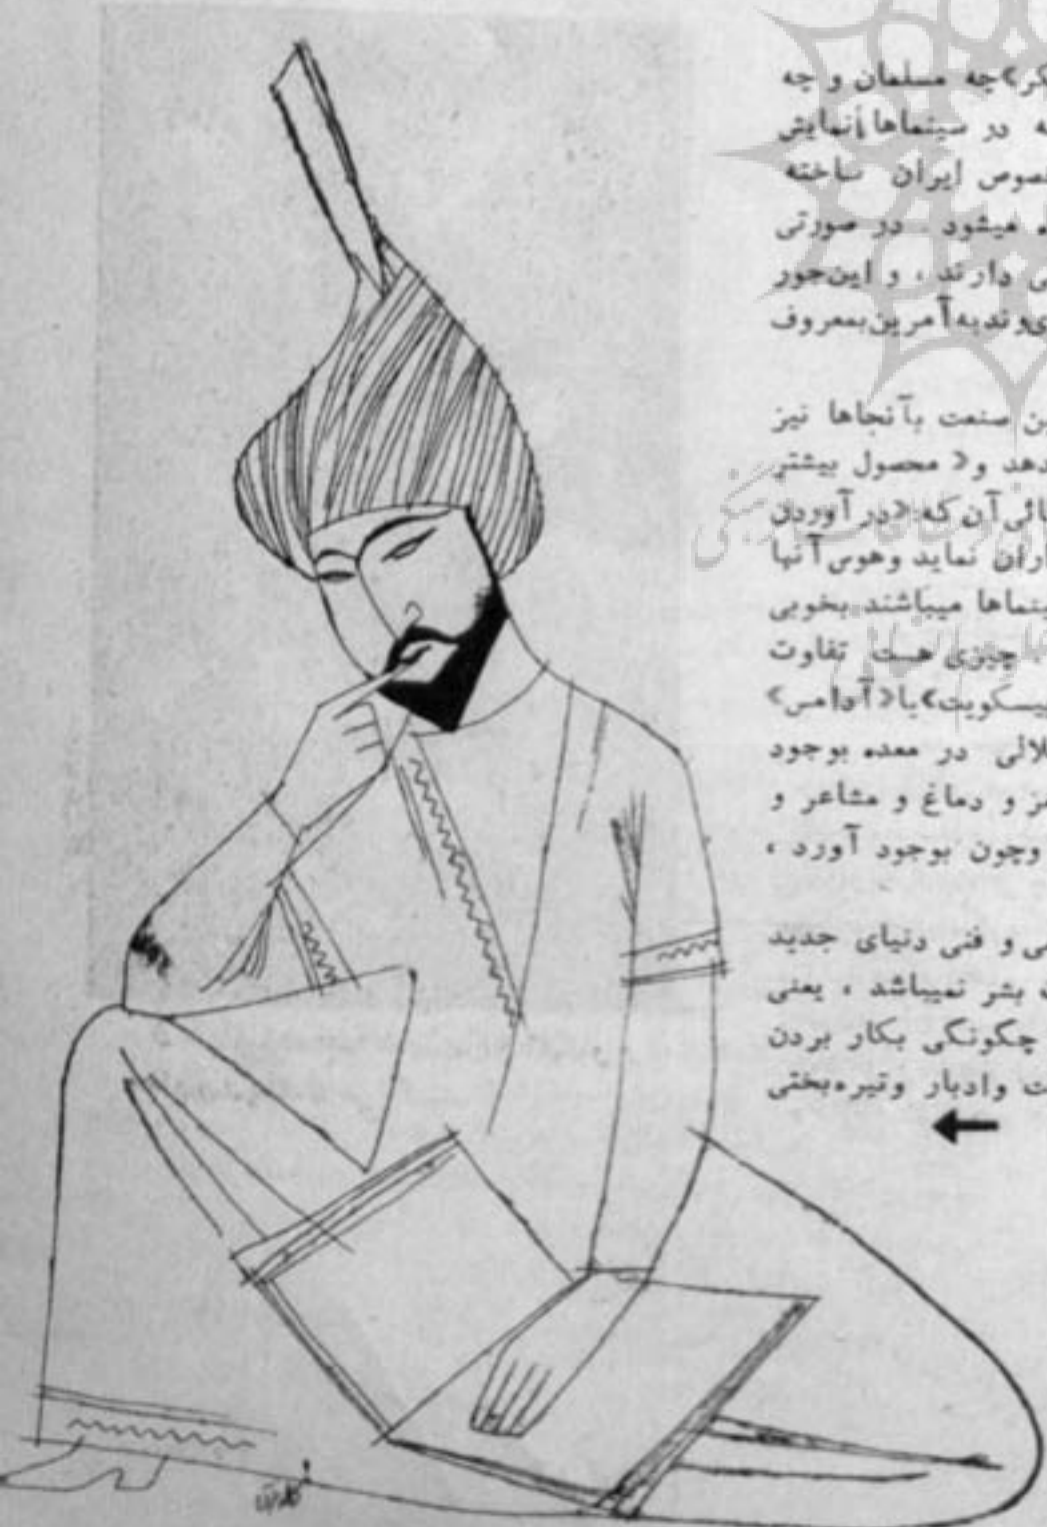 چه مسلمان و چه
در سینماها نمایش
ایران ساخته
میشود . در صورتی
دارند ، و این‌جور
به آمرین بمعروف
صنعت بآنجاها نیز
و« محصول بیشتر
آن که «در آوردن
نماید وهوس آنها
میباشند بخوبی
چیزی هست تفاوت
با«آدامس»
در معده بوجود
و دماغ و مشاعر و
وچون بوجود آورد ،
و فنی دنیای جدید
بشر نمیباشد ، یعنی
چگونگی بکار بردن
وادبار وتیره‌بختی